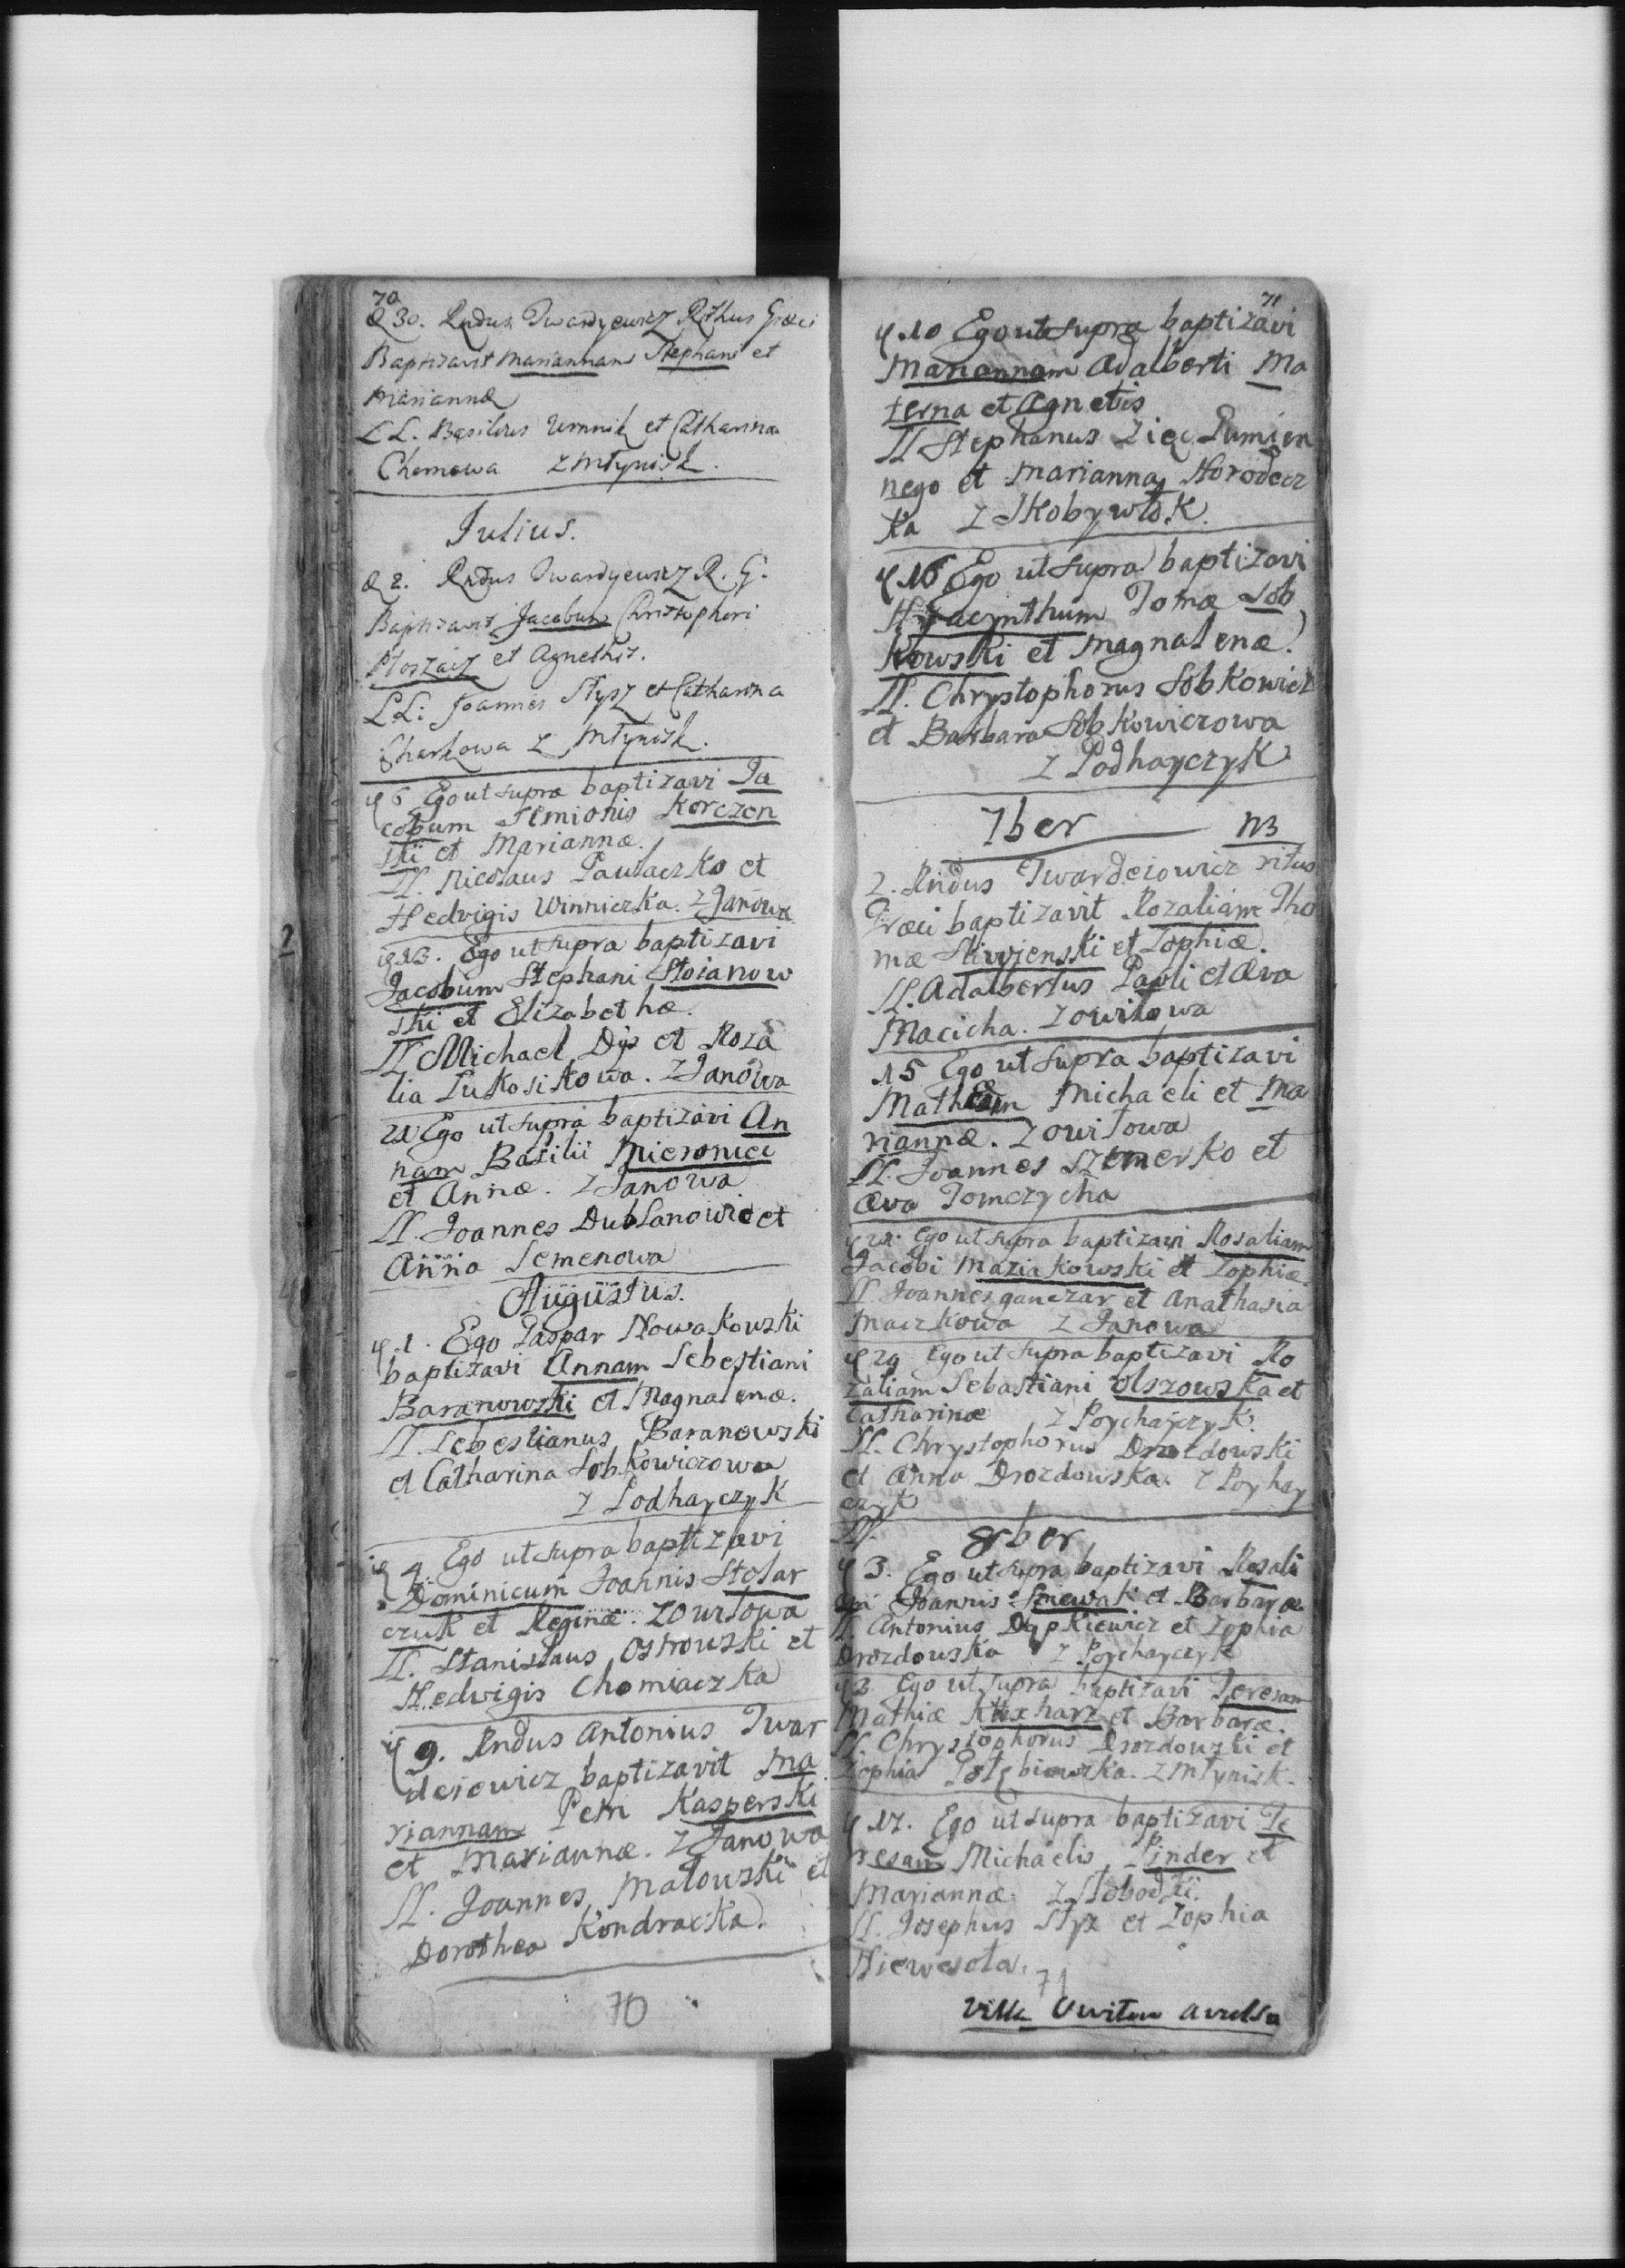 70
30. Rndus Twardyewicz Rithus Graeci
Baptizavit Mariannam Stephani et
Mariannæ
LL. Basilius Umnik et Catharina
Chomowa z Młynisk.
Julius.
2. Rndus Twardyewicz R. G.
Baptizavit Jacobum Christophori
et Agnethis.
LL: Joannes Stysz et Catharina
z Młynisk.
6 Ego ut supra baptizavi Ja
cobum Semionis Korczen
ski et Mariannæ.
LL. Nicolaus Pawlaczko et
Hedvigis Winniczka. z Janowa
13. Ego ut supra baptizavi
Jacobum Stephani Stojanow
ski et Elizabethæ.
LL Michael Dys et Roza
lia Lukosikowa. z Janowa
21 Ego ut supra baptizavi An
nam Basilii
et Annæ. z Janowa
LL. Joannes Dublanowic et
Anna Semenowa
Augustus.
1. Ego Gaspar Nowakowski
baptizavi Annam Sebestiani
Baranowski et Magnalenæ.
LL. Sebestianus Baranowski
et Catharina Sobkowiczowa
z Podhayczyk
4. Ego ut supra baptizavi
Dominicum Joannis Stolar
czuk et Reginæ. z Owitowa
LL. Stanislaus Ostrowski et
Hedvigis Chomiaczka
9. Rndus Antonius Twar
deiowicz baptizavit Ma
riannam Petri Kasperski
et Mariannæ. z Janowa
LL. Joannes Małowski et
Dorothea Kondracka.
70
71
10 Ego ut supra baptizavi
Mariannam Adalberti Ma
terna et Agnetis
LL Stephanus Zięc Rumien
nego et Marianna Horodecz
ka z Skobywłok.
16 Ego ut supra baptizavi
Hyacynthum Tomæ Sob
kowski et Magnalenæ.
LL. Chrystophorus Sobkowicz
et Barbara Sobkowiczowa
z Podhayczyk
7ber NB
2. Rndus Twardeiowicz ritus
Græci baptizavit Rozaliam Tho
mæ et Zophiæ.
LL. Adalbertus Pawli et Æva
Macicha. z Owitowa
15 Ego ut supra baptizavi
Michaeli et Ma
riannæ. z Owitowa
LL. Joannes Szemerko et
Æva Tomczycha
21. Ego ut supra baptizavi Rosaliam
Jacobi Maziakowski et Zophiæ.
LL Joannes ganczar et Anathasia
Maczkowa z Janowa
29 Ego ut supra baptizavi Ro
zaliam Sebastiani Olszowska et
Catharinæ z Poychayczyk.
LL. Chrystophorus Drozdowski
et Anna Drozdowska. z Poyhay
czyk
LL. 8ber
3. Ego ut supra baptizavi Rosali
am Joannis et Barbaræ
LL Antonius Dąpkiewicz et Zophia
Drozdowska z Poychayczyk
3. Ego ut supra baptizavi Teresam
Mathiæ Kucharz et Barbaræ.
LL. Chrystophorus Drozdowski et
Zophia Gołębiowska. z Młynisk.
17. Ego ut supra baptizavi Te
resam Michaelis Pinder et
Mariannæ. z Słobodki.
LL. Josephus Styx et Zophia
Niewesoła.
71
Villa Owitow avulsa